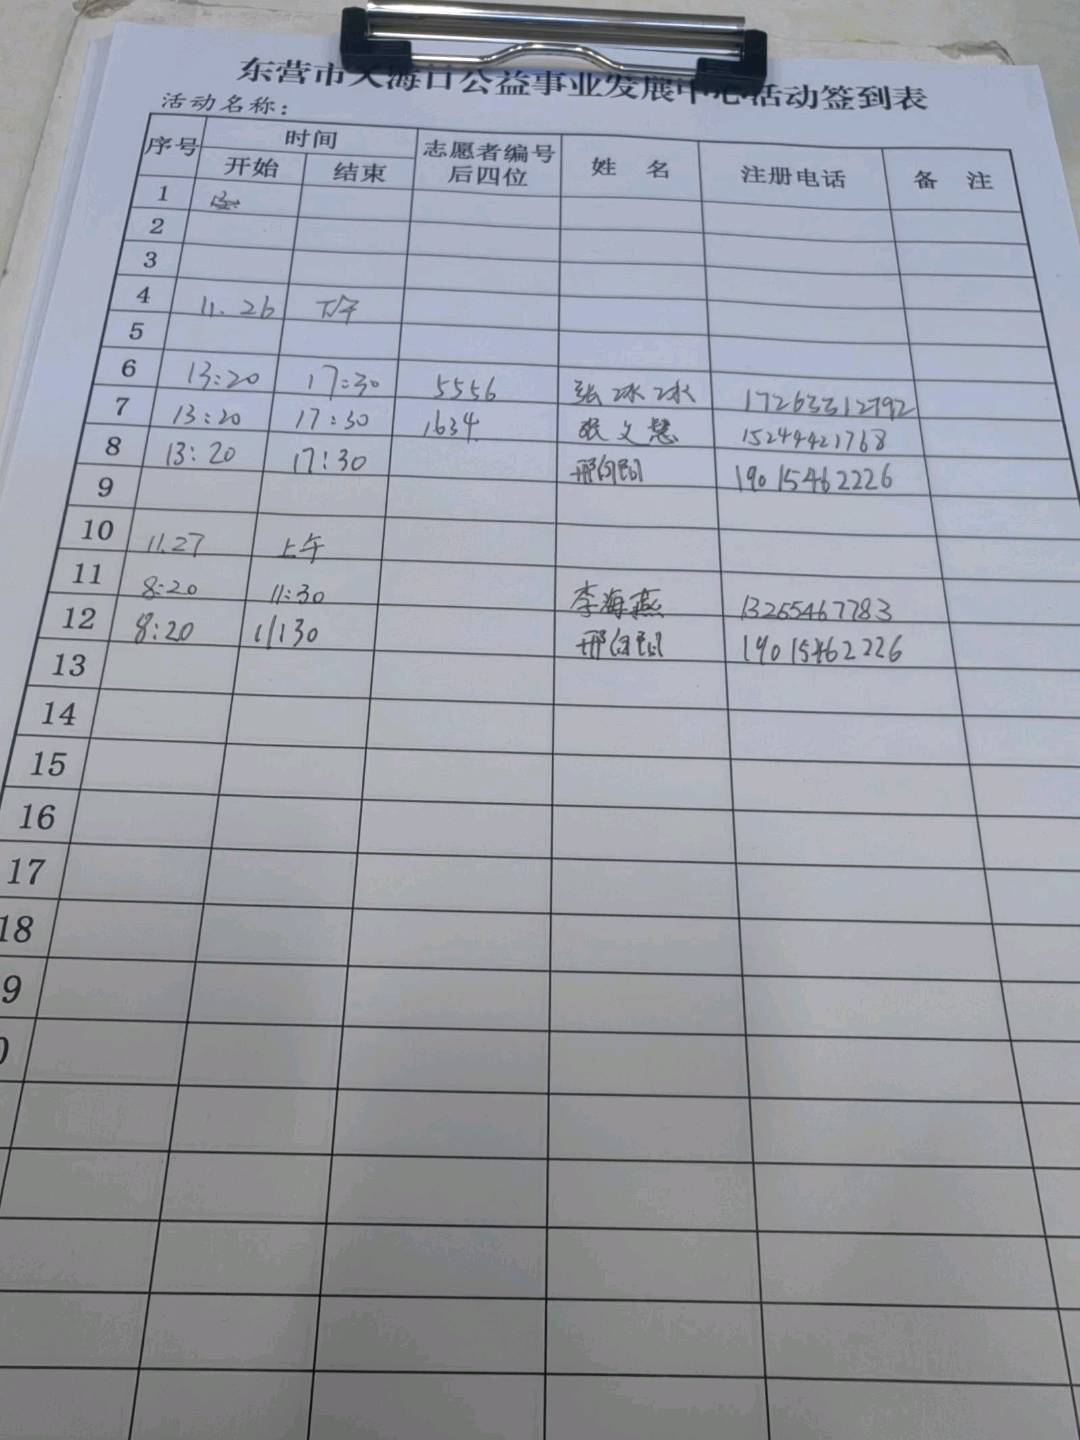 东营市大海口公益事业发展中心活动签到表
活动名称：
序号 时间 志愿者编号后四位 姓 名 注册电话 备 注
开始 结束
1
2
3
4 11.26 下午
5
6 13:20 17:30 5556 张冰冰 17263312792
7 13:20 17:30 1634 张文慧 15244421768
8 13:20 17:30 19015462226
9
10 11.27 上午
11 8:20 11:30 李海燕 13265467783
12 8:20 11:30 19015462226
13
14
15
16
17
18
9
0